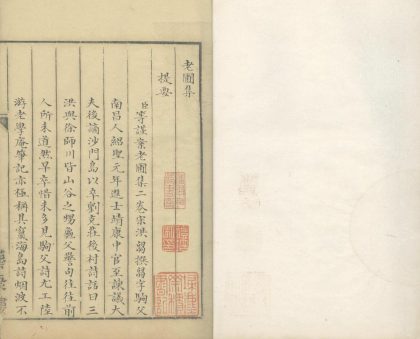 老圃集
提要
臣等謹案老圃集二卷宋洪芻撰芻字駒父
南昌人紹聖元年進士靖康中官至諫議大
夫後謫沙門島以卒劉克莊後村詩話曰三
洪與徐師川皆山谷之甥龜父警句往往前
人所未道然早卒惜未多見駒父詩尤工陸
游老學庵筆記亦極稱其竄海島詩烟波不